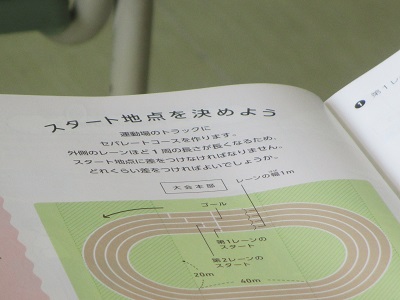 スタート地点を決めよう
運動場のトラックに
セパレートコースを作ります。
外側のレーンほど1周の長さが長くなるため、
スタート地点に差をつけなければなりません。
どれくらい差をつければよいでしょうか。
大会本部
レーンの幅1m
ゴール
第1レーンの
スタート
第2レーンの
スタート
20m
40m
1 第1レー